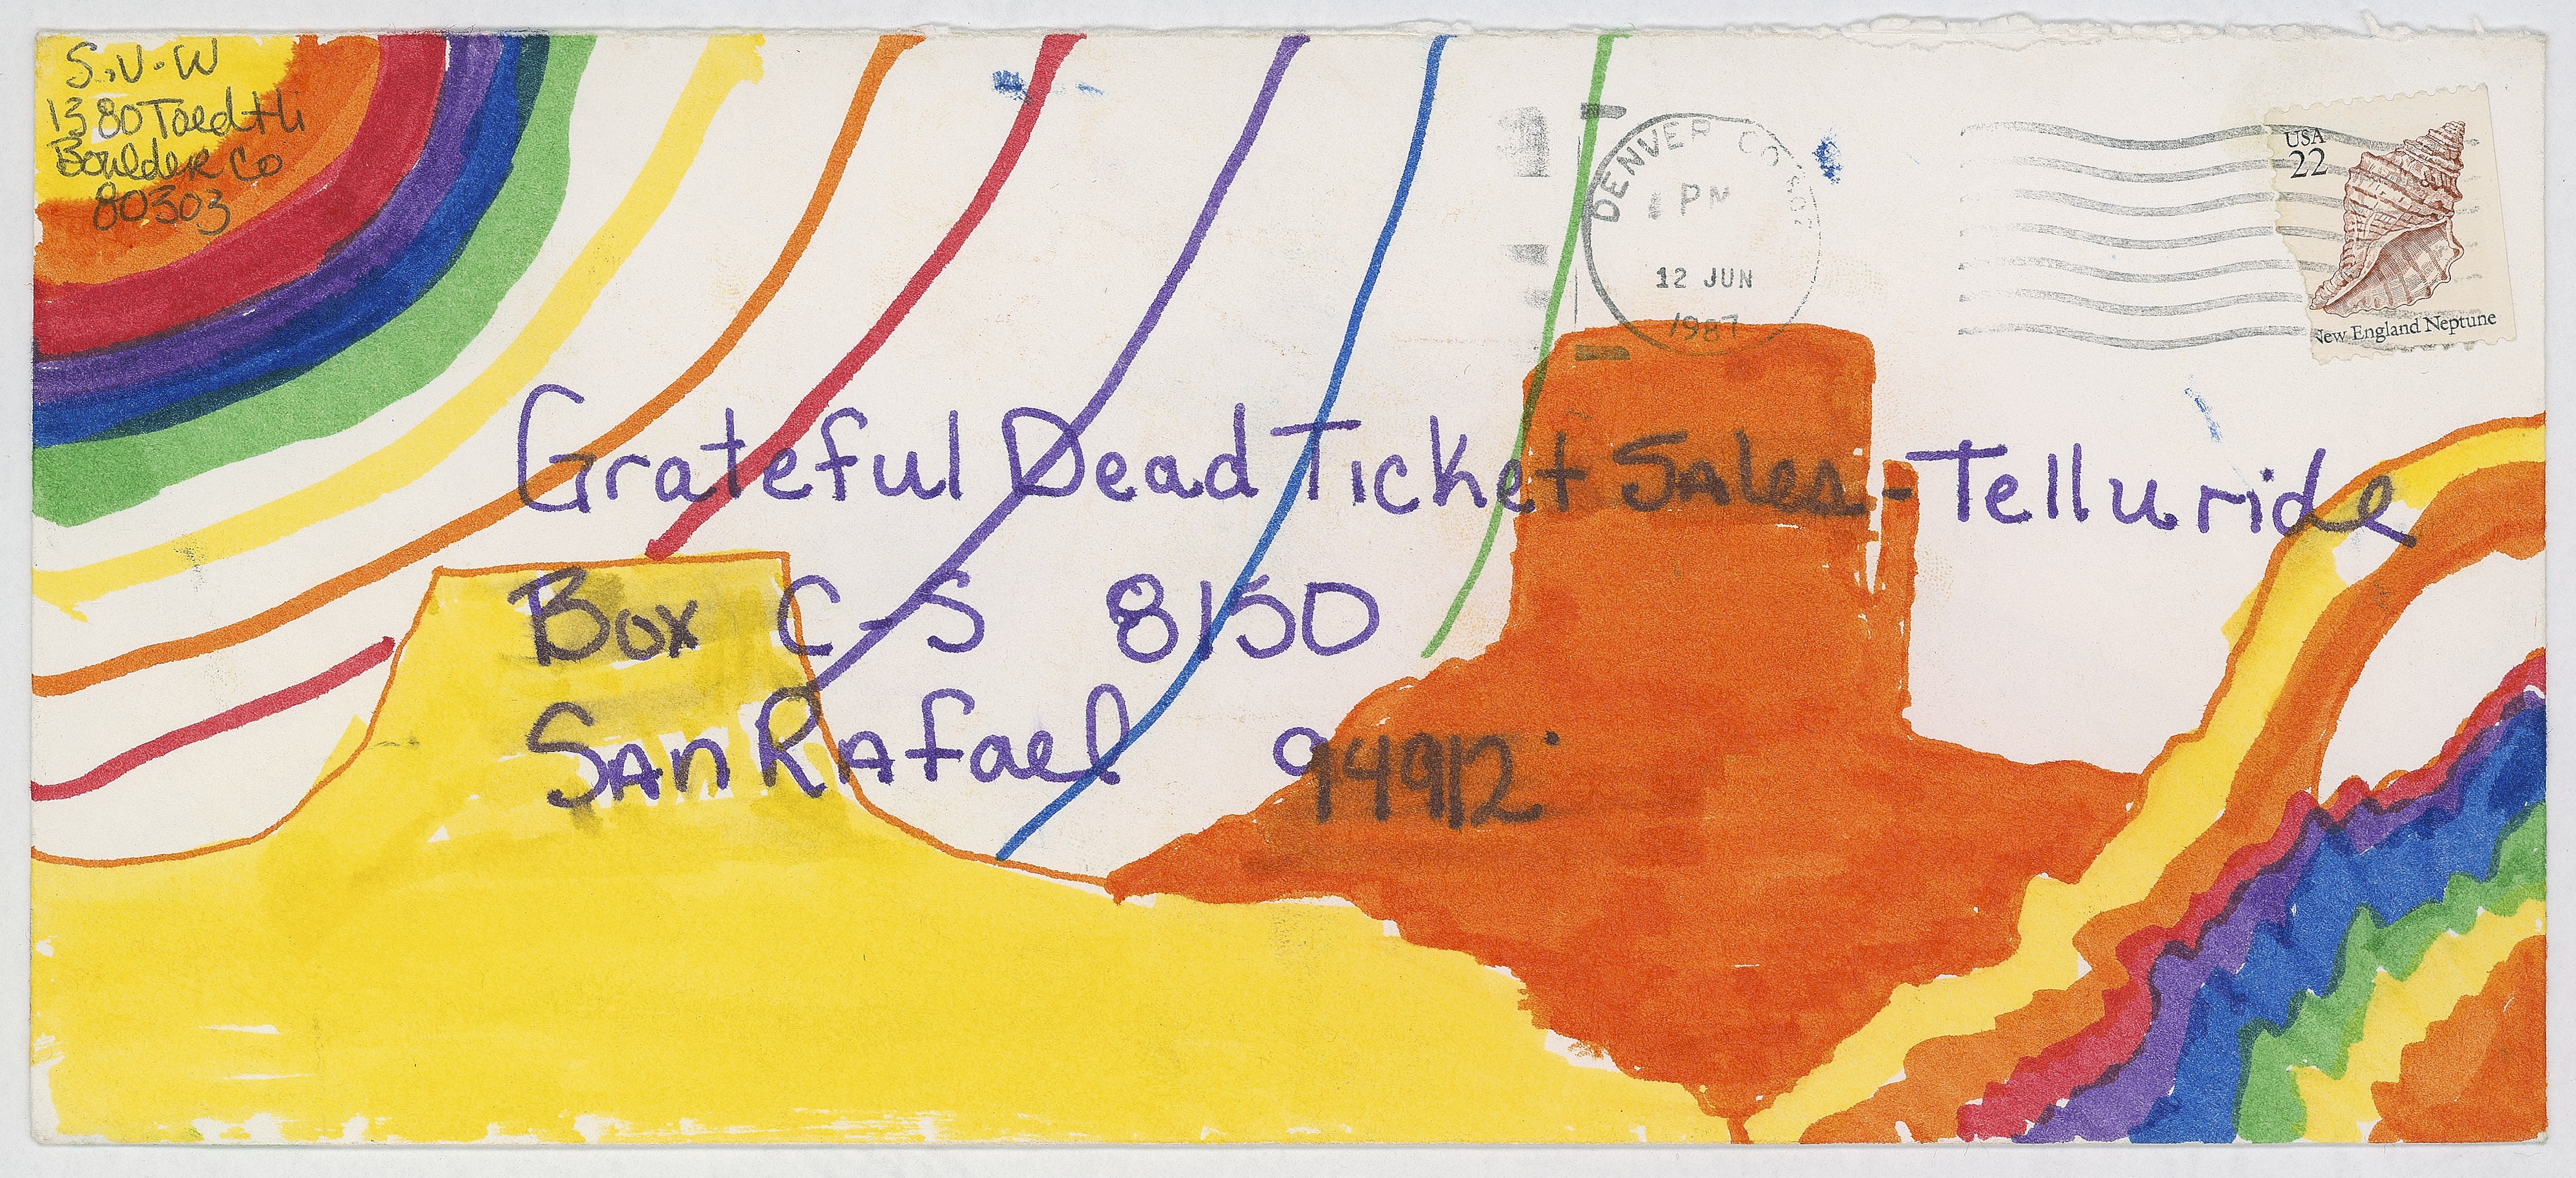 S.V.W
1380 Toedtli
Boulder Co
80303
DENVER CO 802
PM
12 JUN
1987
USA
22
New England Neptune
Grateful Dead Ticket Sales - Telluride
Box C-S 8150
San Rafael 94912